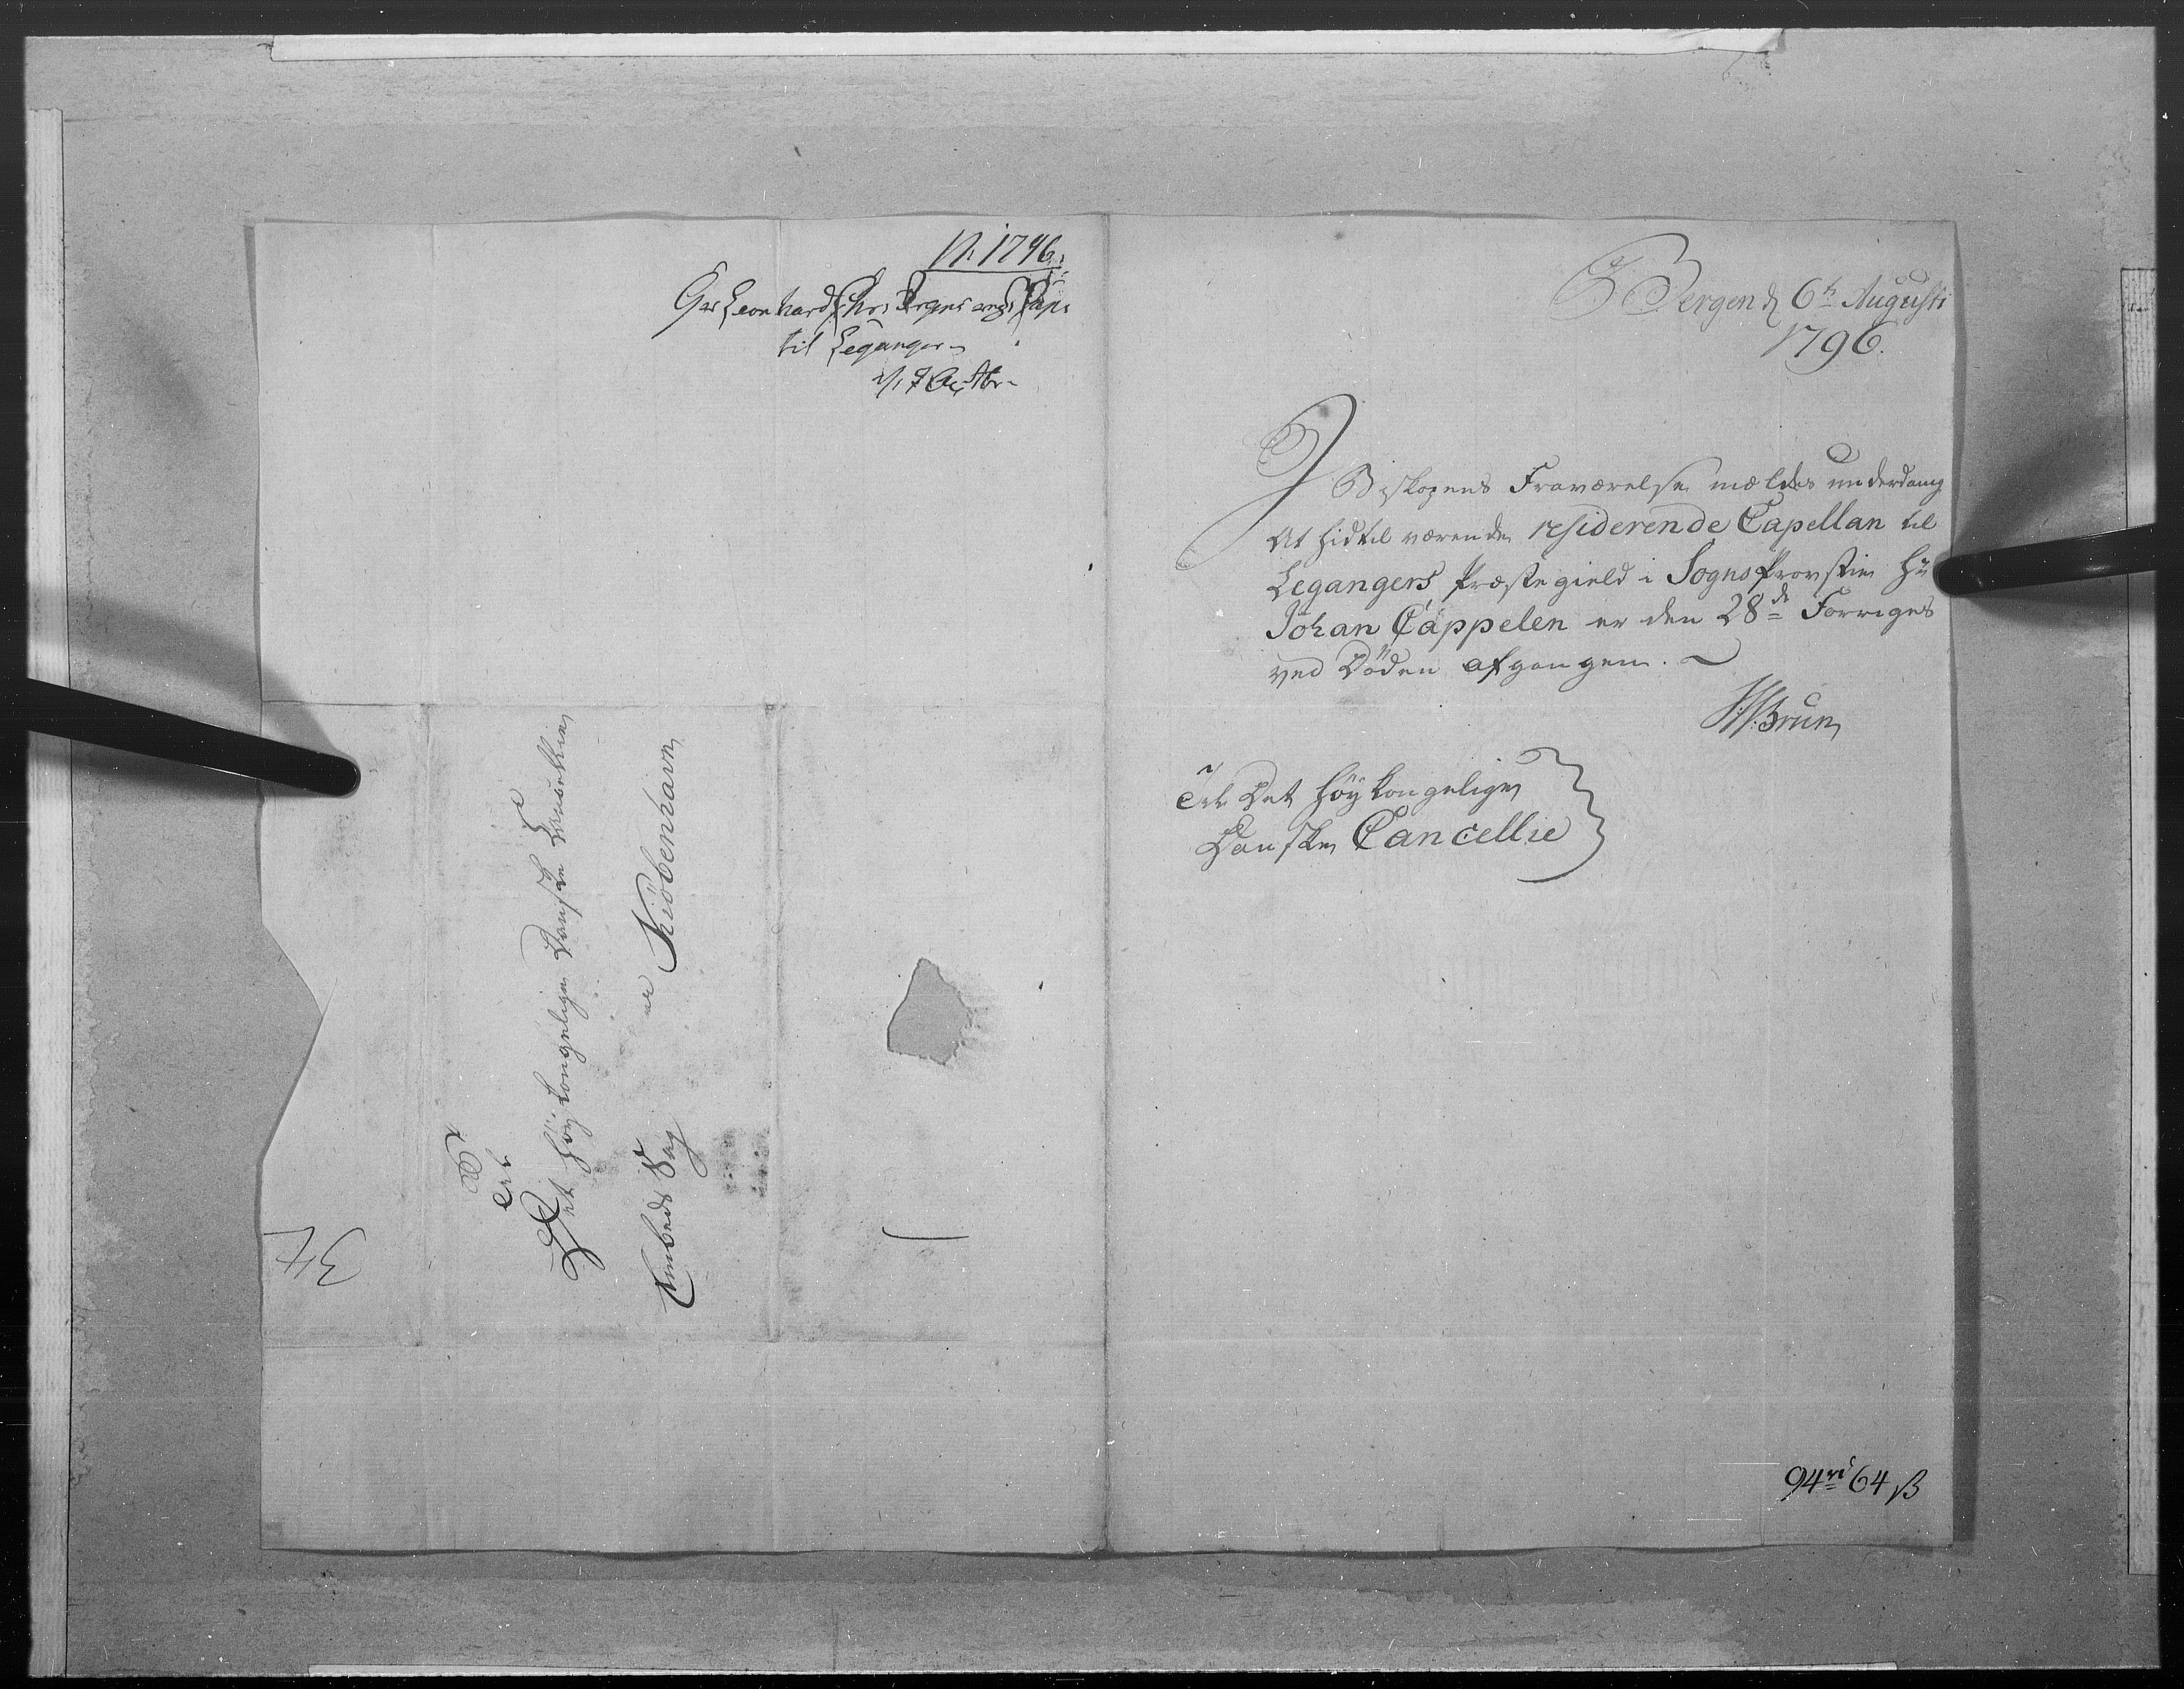 N. 1746.
Hr Leonhard Chri.
til Leganger
Bergen d 6te Augusti
1796.
I Biskopens Fraværelse meldes underdanig
At hidtil værende residerende Capellan til
Legangers Præstegield i Sogns Provstie Hr
Johan Cappelen er den 28de Forriges
ved Döden afgangen.
Brun
Til Det Höykongelige
Danske Cancellie
Til
Det Höykongelige Danske Cancellie
Embeds Sag
a Kiöbenhavn
94 rd 64 ß